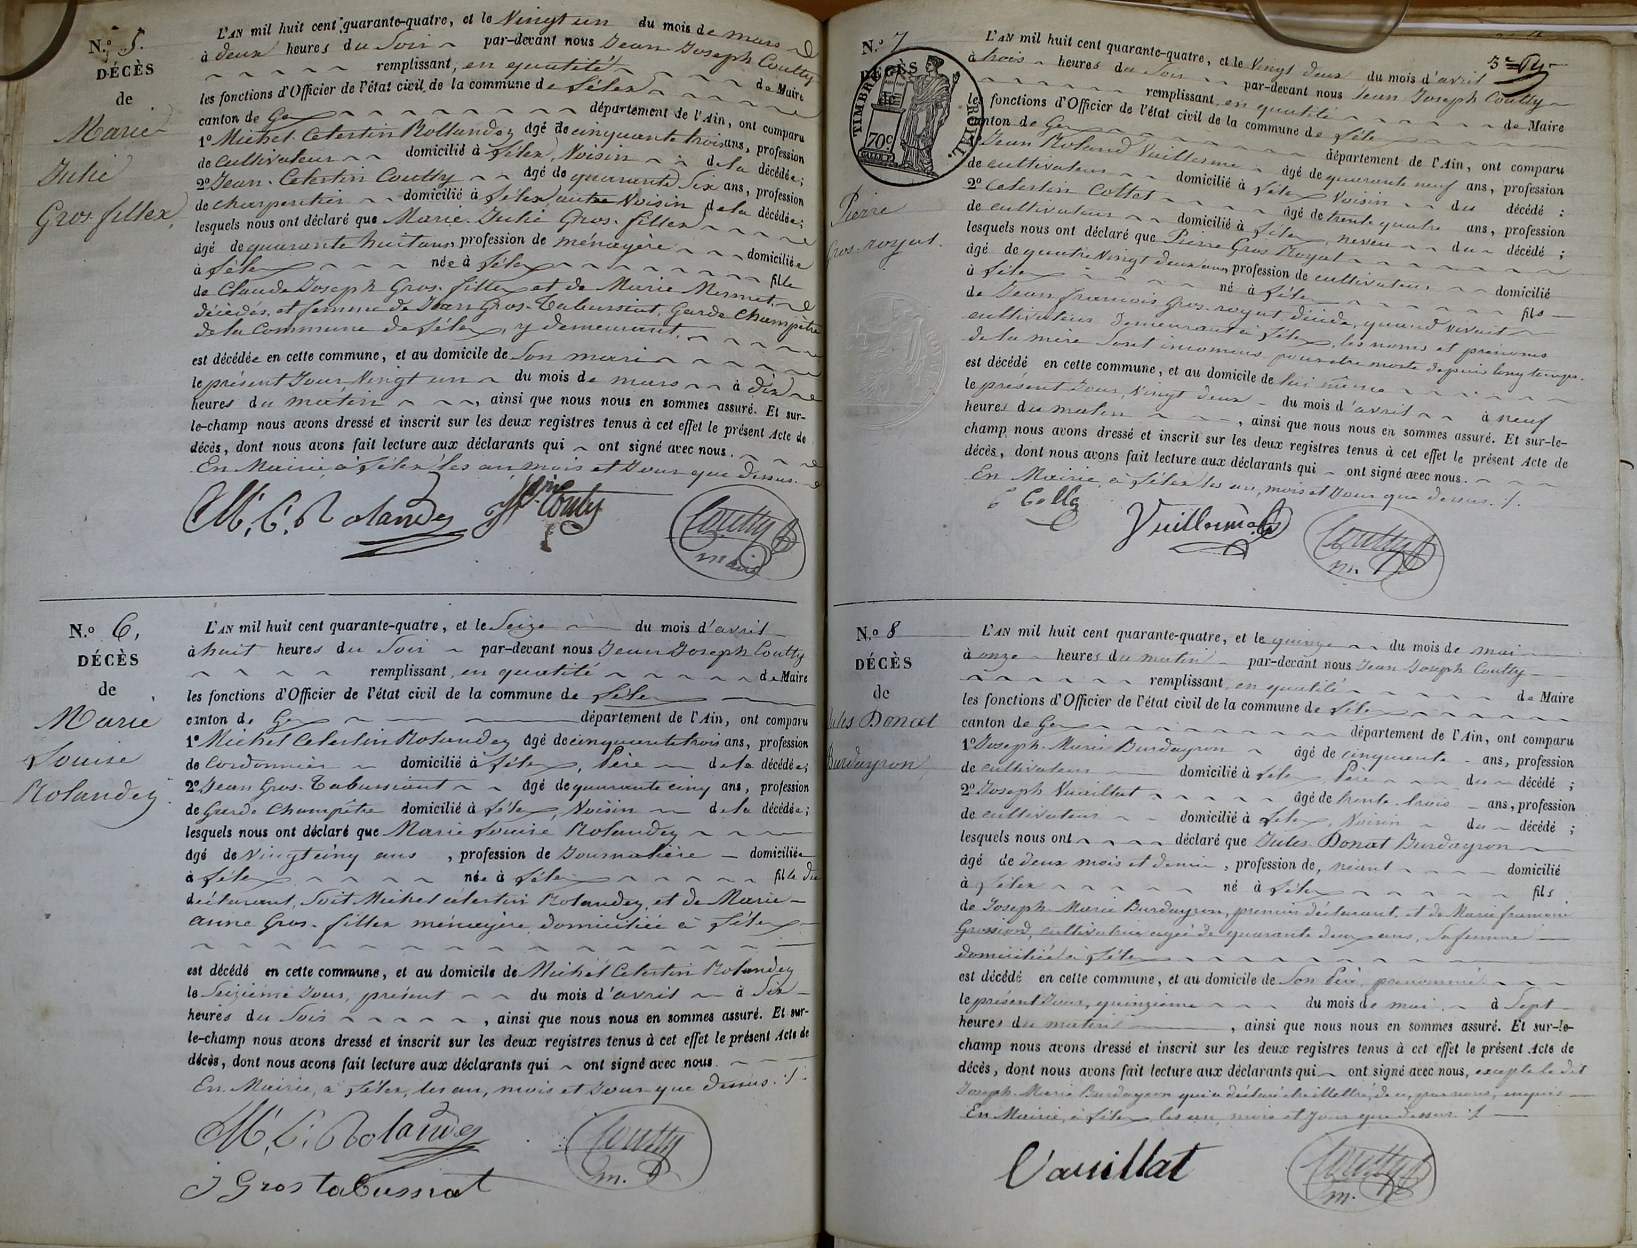 N.° 5.
DÉCÈS
de
Marie
Julie
Gros-fillex
L'AN mil huit cent quarante-quatre, et le Vingt un du mois de mars
à deux heures du Soir par-devant nous Jean Joseph Coutty
remplissant, en qualité de Maire
les fonctions d'Officier de l'état civil de la commune de Lélex
canton de Gex département de l'Ain, ont comparu
1° Michel Célestin Rollandez âgé de cinquante trois ans, profession
de cultivateur domicilié à Lélex, Voisin de la décédée;
2° Jean-Célestin Coutty âgé de quarante Six ans, profession
de charpentier domicilié à Lélex, autre Voisin de la décédée;
lesquels nous ont déclaré que Marie-Julie Gros-fillex
âgé de quarante huit ans, profession de ménagère domiciliée
à Lélex née à Lélex fille
de Claude Joseph Gros-fillex et de Marie Mermet,
décédés, et femme de Jean Gros-Tabussiat, Garde Champêtre
de la Commune de Lélex, y demeurant.
est décédée en cette commune, et au domicile de Son mari
le présent Jour Vingt un du mois de mars à dix
heures du matin, ainsi que nous nous en sommes assuré. Et sur-
le-champ nous avons dressé et inscrit sur les deux registres tenus à cet effet le présent Acte de
décès, dont nous avons fait lecture aux déclarants qui ont signé avec nous.
En Mairie, à Lélex les an mois et Jour que dessus.
M. C. Rolandez Coutty Coutty
maire
N.° 6.
DÉCÈS
de
Marie
Louise
Rolandez
L'AN mil huit cent quarante-quatre, et le Seize du mois d'avril
à huit heures du Soir par-devant nous Jean Joseph Coutty
remplissant, en qualité de Maire
les fonctions d'Officier de l'état civil de la commune de Lélex
canton de Gex département de l'Ain, ont comparu
1° Michel Célestin Rolandez âgé de cinquante trois ans, profession
de Cordonnier domicilié à Lélex, Père de la décédée;
2° Jean Gros-Tabussiant âgé de quarante cinq ans, profession
de Garde Champêtre domicilié à Lélex, Voisin de la décédée;
lesquels nous ont déclaré que Marie Louise Rolandez
âgé de Vingt cinq ans, profession de Journalière domiciliée
à Lélex née à Lélex fille du
déclarant, Soit Michel célestin Rolandez, et de Marie-
anne Gros-fillex ménagère, domiciliée à Lélex
est décédé en cette commune, et au domicile de Michel Célestin Rolandez
le Seizième Jour, présent du mois d'avril à Six
heures du Soir, ainsi que nous nous en sommes assuré. Et sur-
le-champ nous avons dressé et inscrit sur les deux registres tenus à cet effet le présent Acte de
décès, dont nous avons fait lecture aux déclarants qui ont signé avec nous.
En Mairie, à Lélex, les an, mois et Jour que dessus.
M. C. Rolandez Coutty
m.
J Gros tabussiat
3e
N.° 7
DÉCÈS
de
TIMBRE ROYAL
70c
Pierre
Gros-royat.
L'AN mil huit cent quarante-quatre, et le Vingt deux du mois d'avril
à trois heures du Soir par-devant nous Jean Joseph Coutty
remplissant, en qualité de Maire
les fonctions d'Officier de l'état civil de la commune de Lélex
canton de Gex département de l'Ain, ont comparu
Jean Roland Vuillerme âgé de quarante neuf ans, profession
de cultivateur domicilié à Lélex Voisin du décédé;
2° Célestin Cottet âgé de trente quatre ans, profession
de cultivateur domicilié à Lélex, neveu du décédé;
lesquels nous ont déclaré que Pierre Gros Royat
âgé de quatre Vingt deux ans, profession de cultivateur domicilié
à Lélex né à Lélex fils
de Jean françois Gros-royat, décédé, quand vivait
cultivateur demeurant à Lélex, les noms et prénoms
de la mère Sont inconnus pour être morte depuis long temps.
est décédé en cette commune, et au domicile de lui même
le présent Jour, Vingt deux du mois d'avril à neuf
heures du matin, ainsi que nous nous en sommes assuré. Et sur-le-
champ nous avons dressé et inscrit sur les deux registres tenus à cet effet le présent Acte de
décès, dont nous avons fait lecture aux déclarants qui ont signé avec nous.
En Mairie, à Lélex les an, mois et Jour que dessus.
Vuillermoz Coutty
m.
N.° 8
DÉCÈS
de
Jules Donat
Burdayron
L'AN mil huit cent quarante-quatre, et le quinze du mois de mai
à onze heures du matin par-devant nous Jean Joseph Coutty
remplissant, en qualité de Maire
les fonctions d'Officier de l'état civil de la commune de Lélex
canton de Gex département de l'Ain, ont comparu
1° Joseph-Marie Burdayron âgé de cinquante ans, profession
de cultivateur domicilié à Lélex, Père du décédé;
2° Joseph Vuaillat âgé de trente-trois ans, profession
de cultivateur domicilié à Lélex, Voisin du décédé;
lesquels nous ont déclaré que Jules Donat Burdayron
âgé de deux mois et demi, profession de, néant domicilié
à Lélex né à Lélex fils
de Joseph Marie Burdayron, premier déclarant, et de Marie françoise
Grossiord, cultivatrice agée de quarante deux ans, sa femme
domiciliée à Lélex
est décédé en cette commune, et au domicile de Son Père, prénommé
le présent Jour, quinzième du mois de mai à Sept
heures du matin, ainsi que nous nous en sommes assuré. Et sur-le-
champ nous avons dressé et inscrit sur les deux registres tenus à cet effet le présent Acte de
décès, dont nous avons fait lecture aux déclarants qui ont signé avec nous, excepté le dit
Joseph-Marie Burdayron qui a déclaré être illettré, de ce, par nous, enquis
En Mairie, à Lélex, les an, mois et Jour que dessus.
Vauillat Coutty
m.